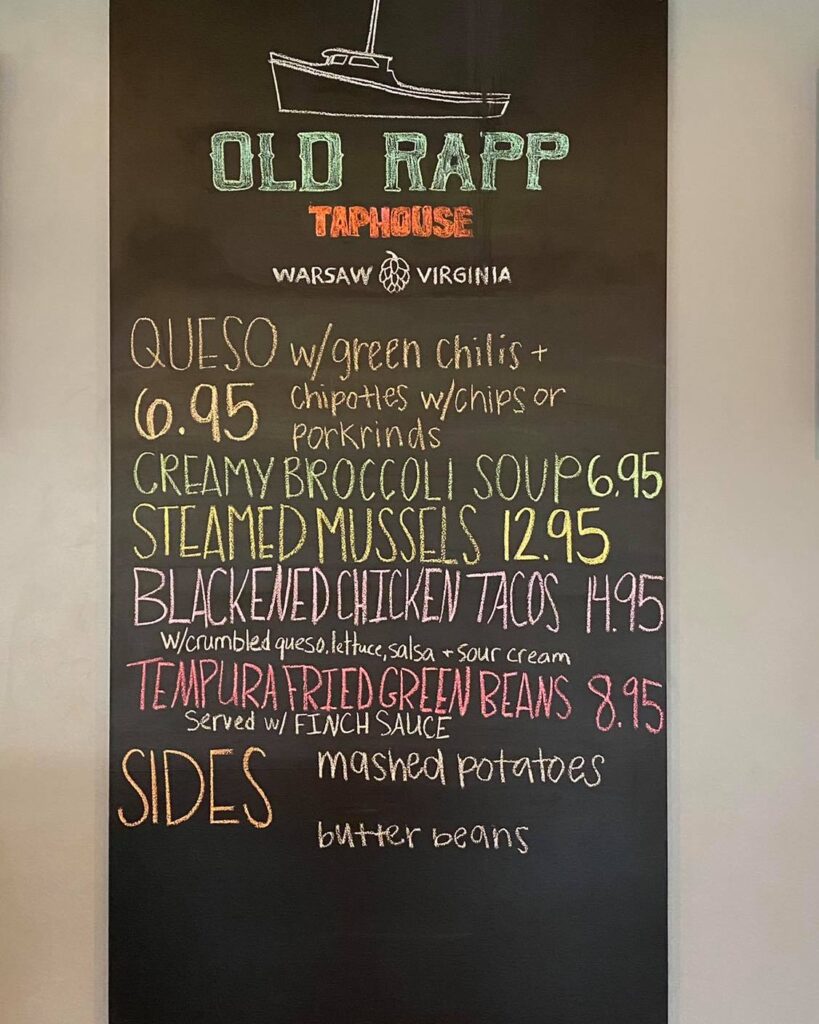 OLD RAPP
TAPHOUSE
WARSAW VIRGINIA
QUESO w/green chilis +
6.95 chipotles w/chips or
porkrinds
CREAMY BROCCOLI SOUP 6.95
STEAMED MUSSELS 12.95
BLACKENED CHICKEN TACOS 14.95
w/crumbled queso, lettuce, salsa + sour cream
TEMPURA FRIED GREEN BEANS 8.95
Served w/ FINCH SAUCE
SIDES mashed potatoes
butter beans